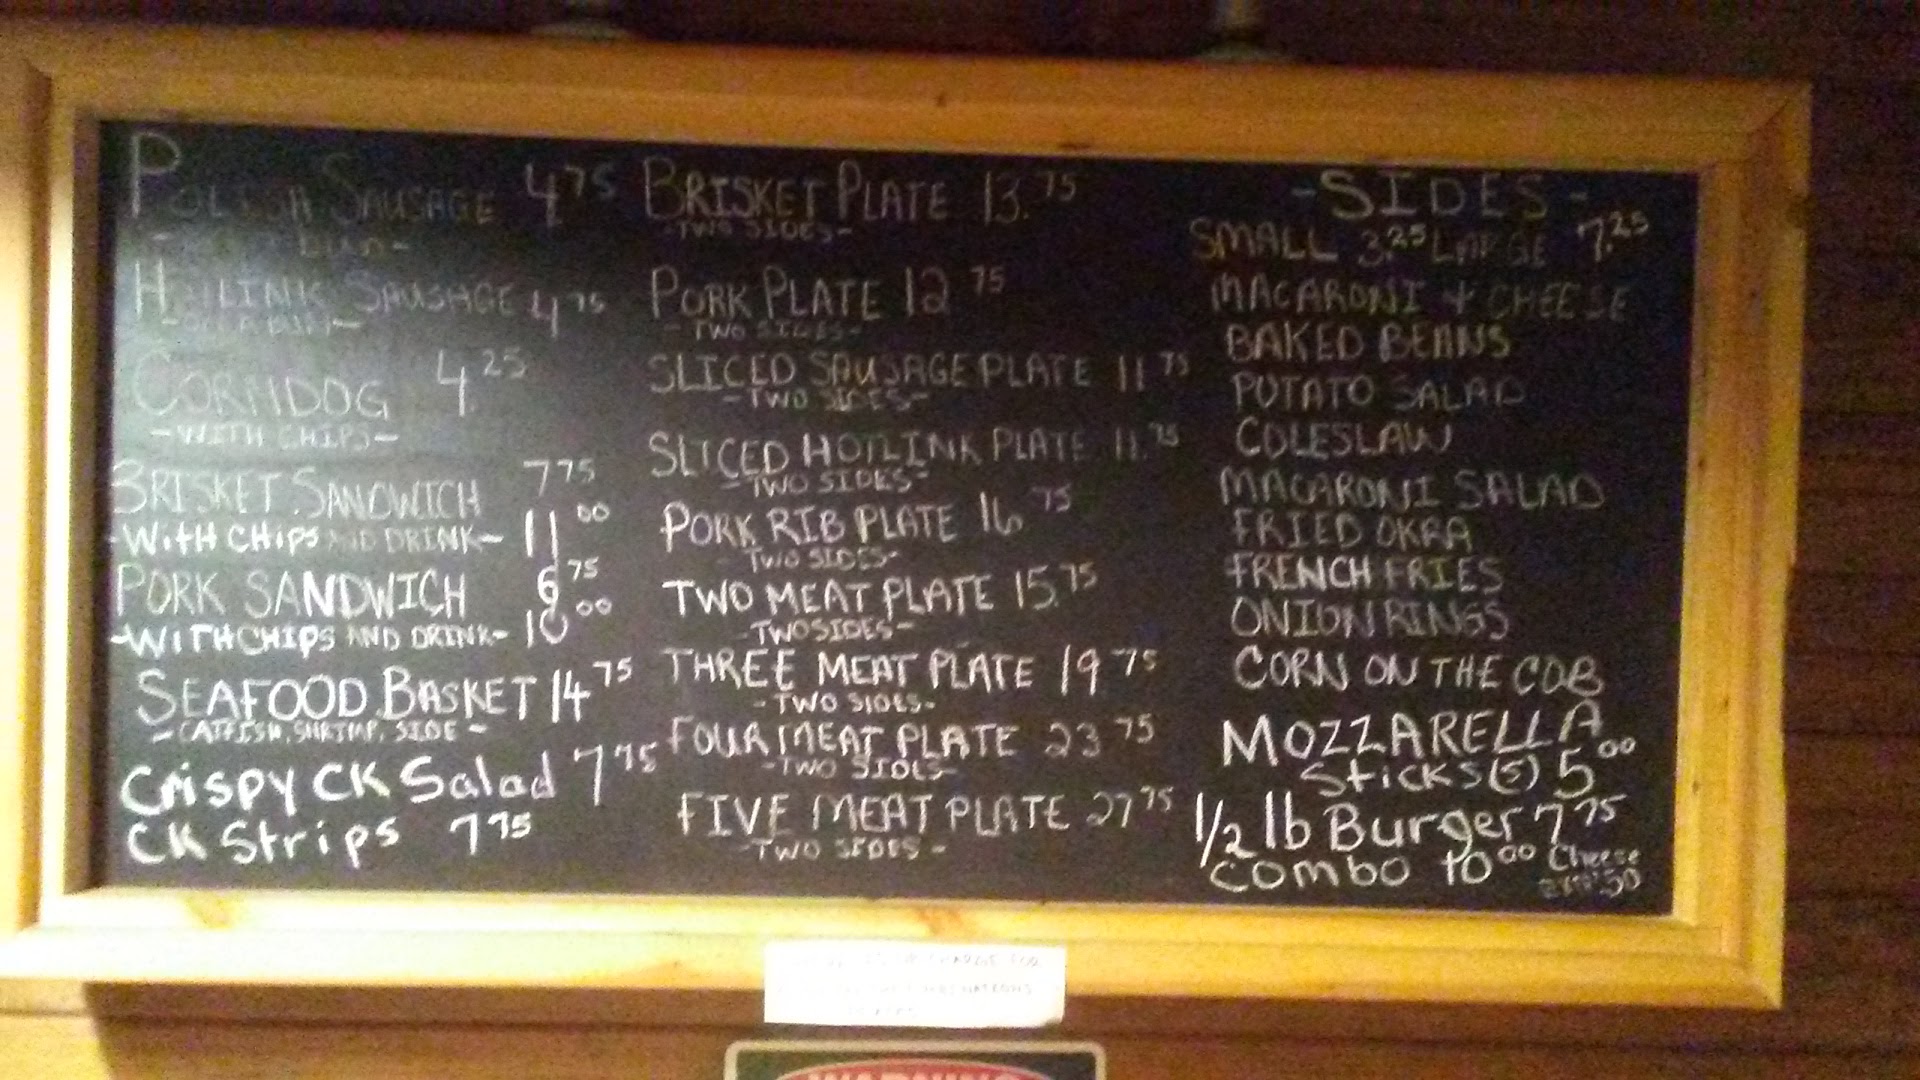 POLISH SAUSAGE 4.75
BUN-
HOTLINK SAUSAGE 4.75
BUN-
CORNDOG 4.25
-WITH CHIPS-
BRISKET SANDWICH 7.75
-WITH CHIPS AND DRINK- 11.00
PORK SANDWICH 6.75
-WITH CHIPS AND DRINK- 10.00
SEAFOOD BASKET 14.75
-CATFISH, SHRIMP, SIDE-
Crispy CK Salad 7.75
CK Strips 7.75
BRISKET PLATE 13.75
-TWO SIDES-
PORK PLATE 12.75
-TWO SIDES-
SLICED SAUSAGE PLATE 11.75
-TWO SIDES-
SLICED HOTLINK PLATE 11.75
-TWO SIDES-
PORK RIB PLATE 16.75
-TWO SIDES-
TWO MEAT PLATE 15.75
-TWO SIDES-
THREE MEAT PLATE 19.75
-TWO SIDES-
FOUR MEAT PLATE 23.75
-TWO SIDES-
FIVE MEAT PLATE 27.75
-TWO SIDES-
-SIDES-
SMALL 3.25 LARGE 7.25
MACARONI + CHEESE
BAKED BEANS
POTATO SALAD
COLESLAW
MACARONI SALAD
FRIED OKRA
FRENCH FRIES
ONION RINGS
CORN ON THE COB
MOZZARELLA
Sticks (5) 5.00
1/2 lb Burger 7.75
Combo 10.00 Cheese
.50
CHARGE FOR
WARNING